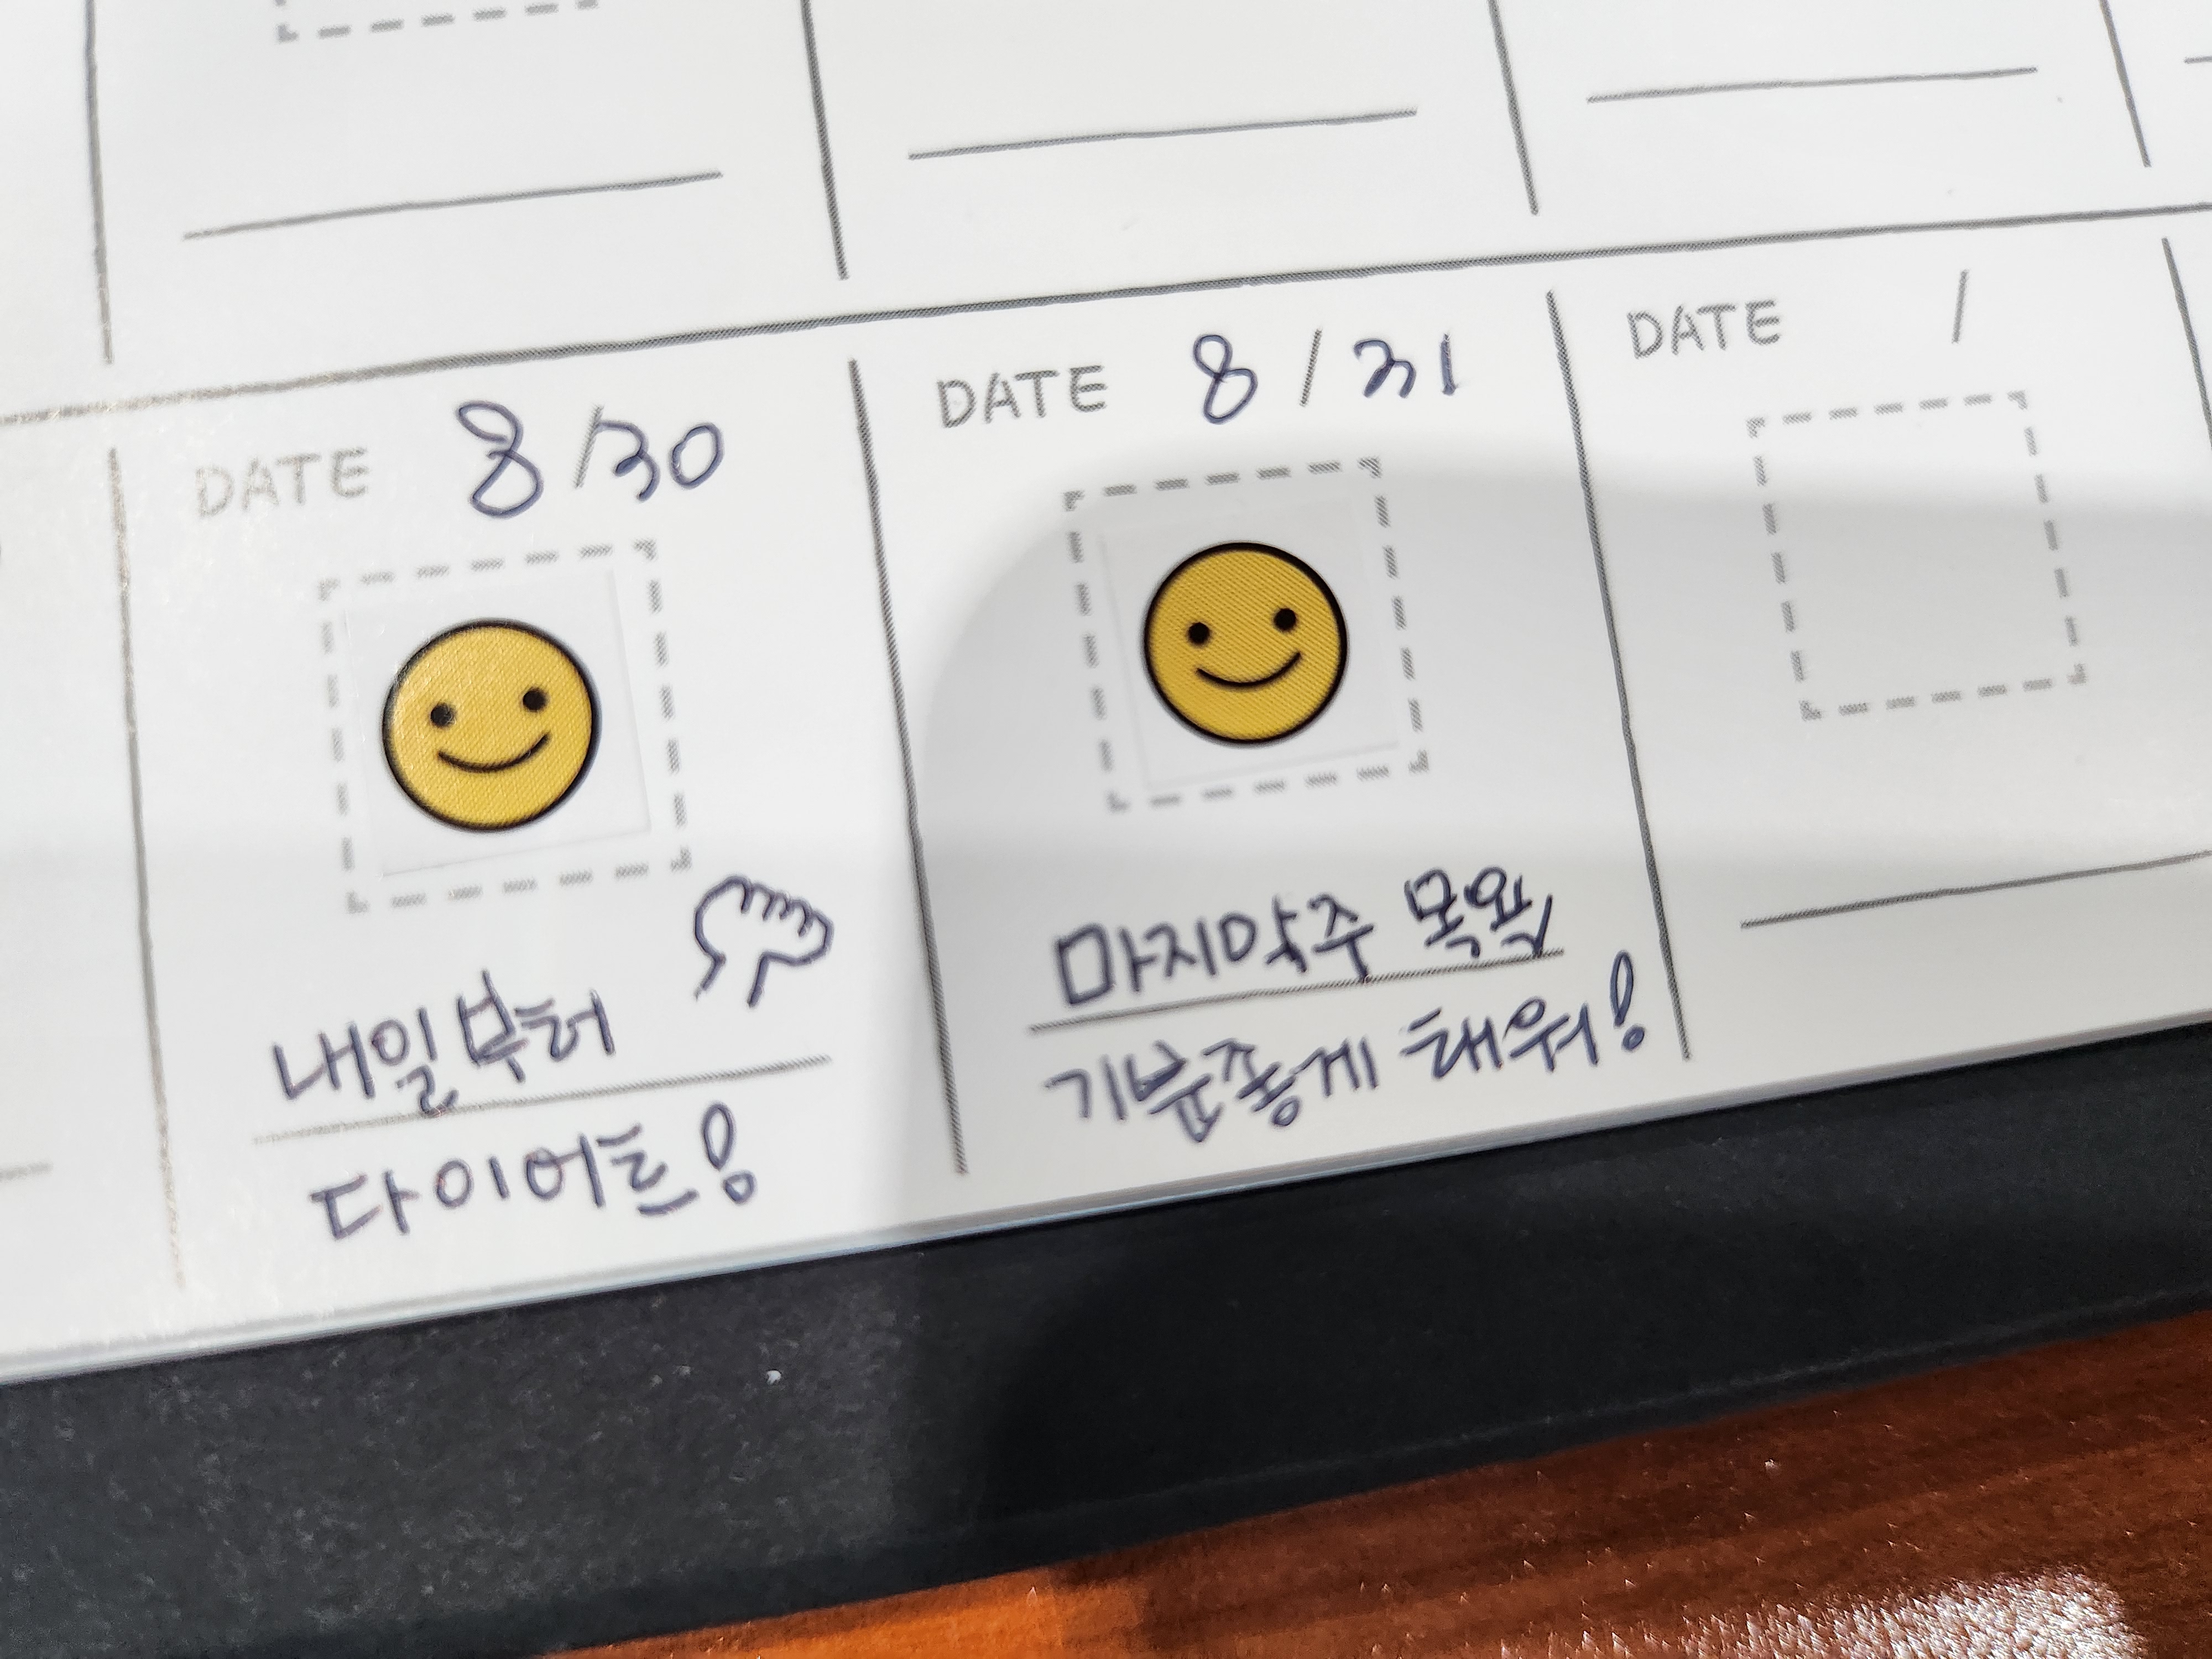 DATE 8/30
내일부터
다이어트!
DATE 8/31
마지막주 목욜
기분좋게 태워!
DATE /